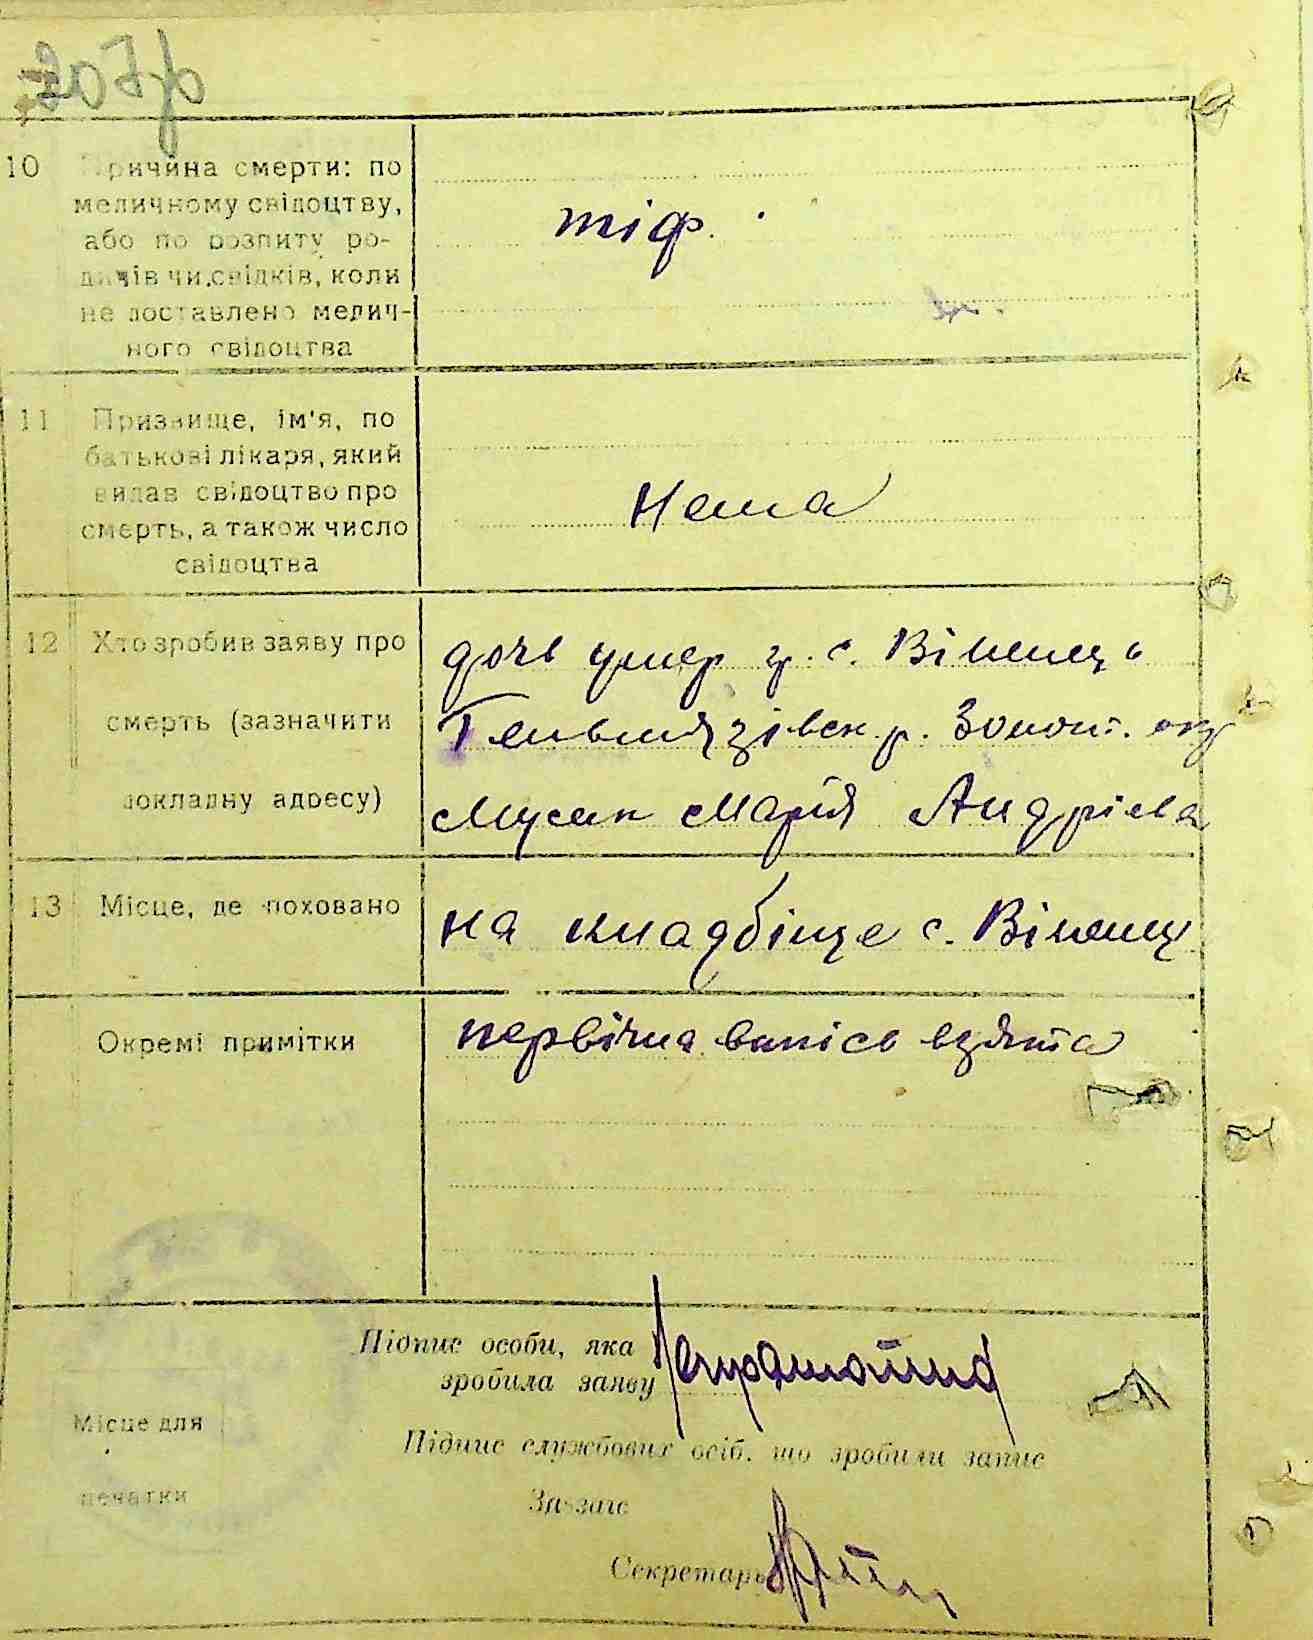 10 Причина смерти: по
медичному свідоцтву,
або по розпиту ро-
дичів чи свідків, коли
не доставлено медич-
ного свідоцтва
тіф.
11 Призвище, ім'я, по
батькові лікаря, який
видав свідоцтво про
смерть, а також число
свідоцтва
Нема
12 Хто зробив заяву про
смерть (зазначити
докладну адресу)
дочь умер гр. с. Віненць
Гельмязівск. р. Золот. окр
Мусик Марія Андрієва
13 Місце, де поховано
на кладбіще с. Віненц
Окремі примітки
первічна випісь взята
Підпис особи, яка
зробила заяву
Місце для
печатки
Підпис службових осіб, що зробили запис
Завзагс
Секретарь